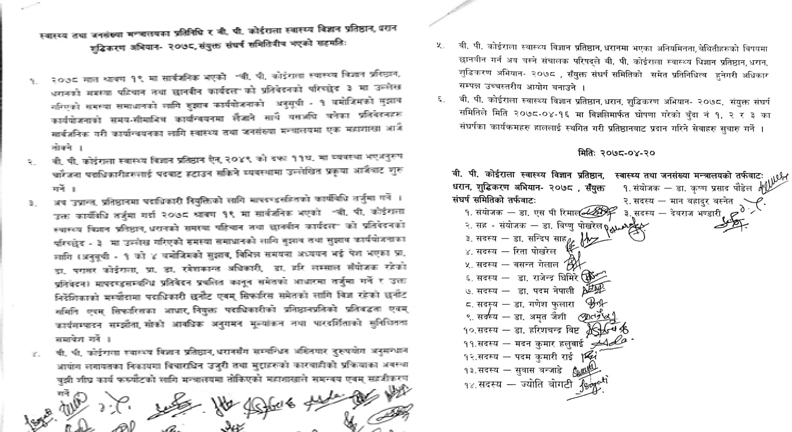 स्वास्थ्य तथा जनसंख्या मन्त्रालयका प्रतिनिधि र बी. पी. कोईराला स्वास्थ्य विज्ञान प्रतिष्ठान, धरान
शुद्धिकरण अभियान- २०७८, संयुक्त संघर्ष समितिबीच भएको सहमतिः
१. २०७८ साल श्रावण १९ मा सार्वजनिक भएको "बी. पी. कोईराला स्वास्थ्य विज्ञान प्रतिष्ठान,
धरानको समस्या पहिचान तथा छानवीन कार्यदल" को प्रतिवेदनको परिच्छेद ३ मा उल्लेख
गरिएको समस्या समाधानको लागि सुझाव कार्यायोजनाको अनुसूची - १ बमोजिमको सुझाव
कार्ययोजनाको समय-सीमाभित्र कार्यान्वयनमा लैजाने साथै यसअघि बनेका प्रतिवेदनहरु
सार्वजनिक गरी कार्यान्वयनका लागि स्वास्थ्य तथा जनसंख्या मन्त्रालयमा एक महाशाखा आजै
तोक्ने ।
२. बी. पी. कोईराला स्वास्थ्य विज्ञान प्रतिष्ठान ऐन, २०४९ को दफा ११घ. मा व्यवस्था भएअनुरुप
पदाधिकारीहरुलाई पदबाट हटाउन सकिने व्यवस्थामा उल्लेखित प्रकृया आजैबाट शुरु
गर्ने ।
३. अब उप्रान्त, प्रतिष्ठानमा पदाधिकारी नियुक्तिको लागि मापदण्डसहितको कार्यविधि तर्जुमा गर्ने ।
उक्त कार्यविधि तर्जुमा गर्दा २०७८ श्रावण १९ मा सार्वजनिक भएको "बी. पी. कोईराला
स्वास्थ्य विज्ञान प्रतिष्ठान, धरानको समस्या पहिचान तथा छानवीन कार्यदल" को प्रतिवेदनको
परिच्छेद - ३ मा उल्लेख गरिएको समस्या समाधानको लागि सुझाव तथा सुझाव कार्ययोजनाका
लागि (अनुसूची - १ को ४ बमोजिमको सुझाव, विभिन्न समयमा अध्ययन भई पेश भएका प्रा.
डा. परासर कोईराला, प्रा. डा. रमेशकान्त अधिकारी, डा. हरि लम्साल संयोजक रहेको
प्रतिवेदन) मापदण्डसम्बन्धि प्रतिवेदन प्रचलित कानून समेतको आधारमा तर्जुमा गर्ने र उक्त
निर्देशिकाको मर्म्यादामा पदाधिकारी छनौट एवम् सिफारिस समेतको लागि विज्ञ रहेको छनौट
समिति एवम् सिफारिसका आधार, नियुक्त पदाधिकारीको प्रतिष्ठानप्रतिको प्रतिवद्धता एवम्
कार्यसम्पादन सम्झौता, सोको आवधिक अनुगमन मूल्यांकन तथा पारदर्शिताको सुनिश्चितता
समावेश गर्ने ।
४. बी. पी. कोईराला स्वास्थ्य विज्ञान प्रतिष्ठान, धरानसँग सम्बन्धित अख्तियार दुरुपयोग अनुसन्धान
आयोग लगायतका निकायमा विचाराधिन उजुरी तथा मुद्दाहरुको कारवाहीको प्रक्रियाका अवस्था
बुझी शीघ्र कार्य फर्छ्यौटको लागि मन्त्रालयमा तोकिएको महाशाखाले समन्वय एवम् सहजीकरण
गर्ने
५. बी. पी. कोईराला स्वास्थ्य विज्ञान प्रतिष्ठान, धरानमा भएका अनियमितता, बेथितीहरुको विषयमा
छानवीन गर्न अब बस्ने संचालक परिषद्ले बी. पी. कोईराला स्वास्थ्य विज्ञान प्रतिष्ठान, धरान,
शुद्धिकरण अभियान- २०७८ , संयुक्त संघर्ष समितिको समेत प्रतिनिधित्व हुनेगरी अधिकार
सम्पन्न उच्चस्तरीय आयोग बनाउने ।
६. बी. पी. कोईराला स्वास्थ्य विज्ञान प्रतिष्ठान, धरान, शुद्धिकरण अभियान- २०७८, संयुक्त संघर्ष
समितिले मिति २०७८-०४-१६ मा विज्ञप्तिमार्फत घोषणा गरेको बुँदा नं १, २ र ३ का
संघर्षका कार्यकमहरु हाललाई स्थगित गरी प्रतिष्ठानबाट प्रदान गरिने सेवाहरु सुचारु गर्ने ।
मितिः २०७८-०४-२०
बी. पी. कोईराला स्वास्थ्य विज्ञान प्रतिष्ठान,
धरान, शुद्धिकरण अभियान- २०७८ , संयुक्त
संघर्ष समितिको तर्फबाटः
१. संयोजक – डा. एस पी रिमाल
२. सह - संयोजक – डा. विष्णु पोखरेल
३. सदस्य – डा. सन्दिप साह
४. सदस्य – रिता पोखरेल
५. सदस्य – बसन्त गेलाल
६. सदस्य – डा. राजेन्द्र घिमिरे
७. सदस्य – डा. पदम नेपाली
८. सदस्य – डा. गणेश फुलारा
९. सदस्य – डा. अमृत जैशी
१०. सदस्य – डा. हरिशचन्द्र विष्ट
११. सदस्य – मदन कुमार हलुवाई
१२. सदस्य – पदम कुमारी राई
१३. सदस्य – सुवास वन्जाडे
१४. सदस्य – ज्योति बोगटी
स्वास्थ्य तथा जनसंख्या मन्त्रालयको तर्फबाटः
१. संयोजक – डा. कृष्ण प्रसाद पौडेल
२. सदस्य – मान बहादुर बस्नेत
३. सदस्य – देवराज भण्डारी